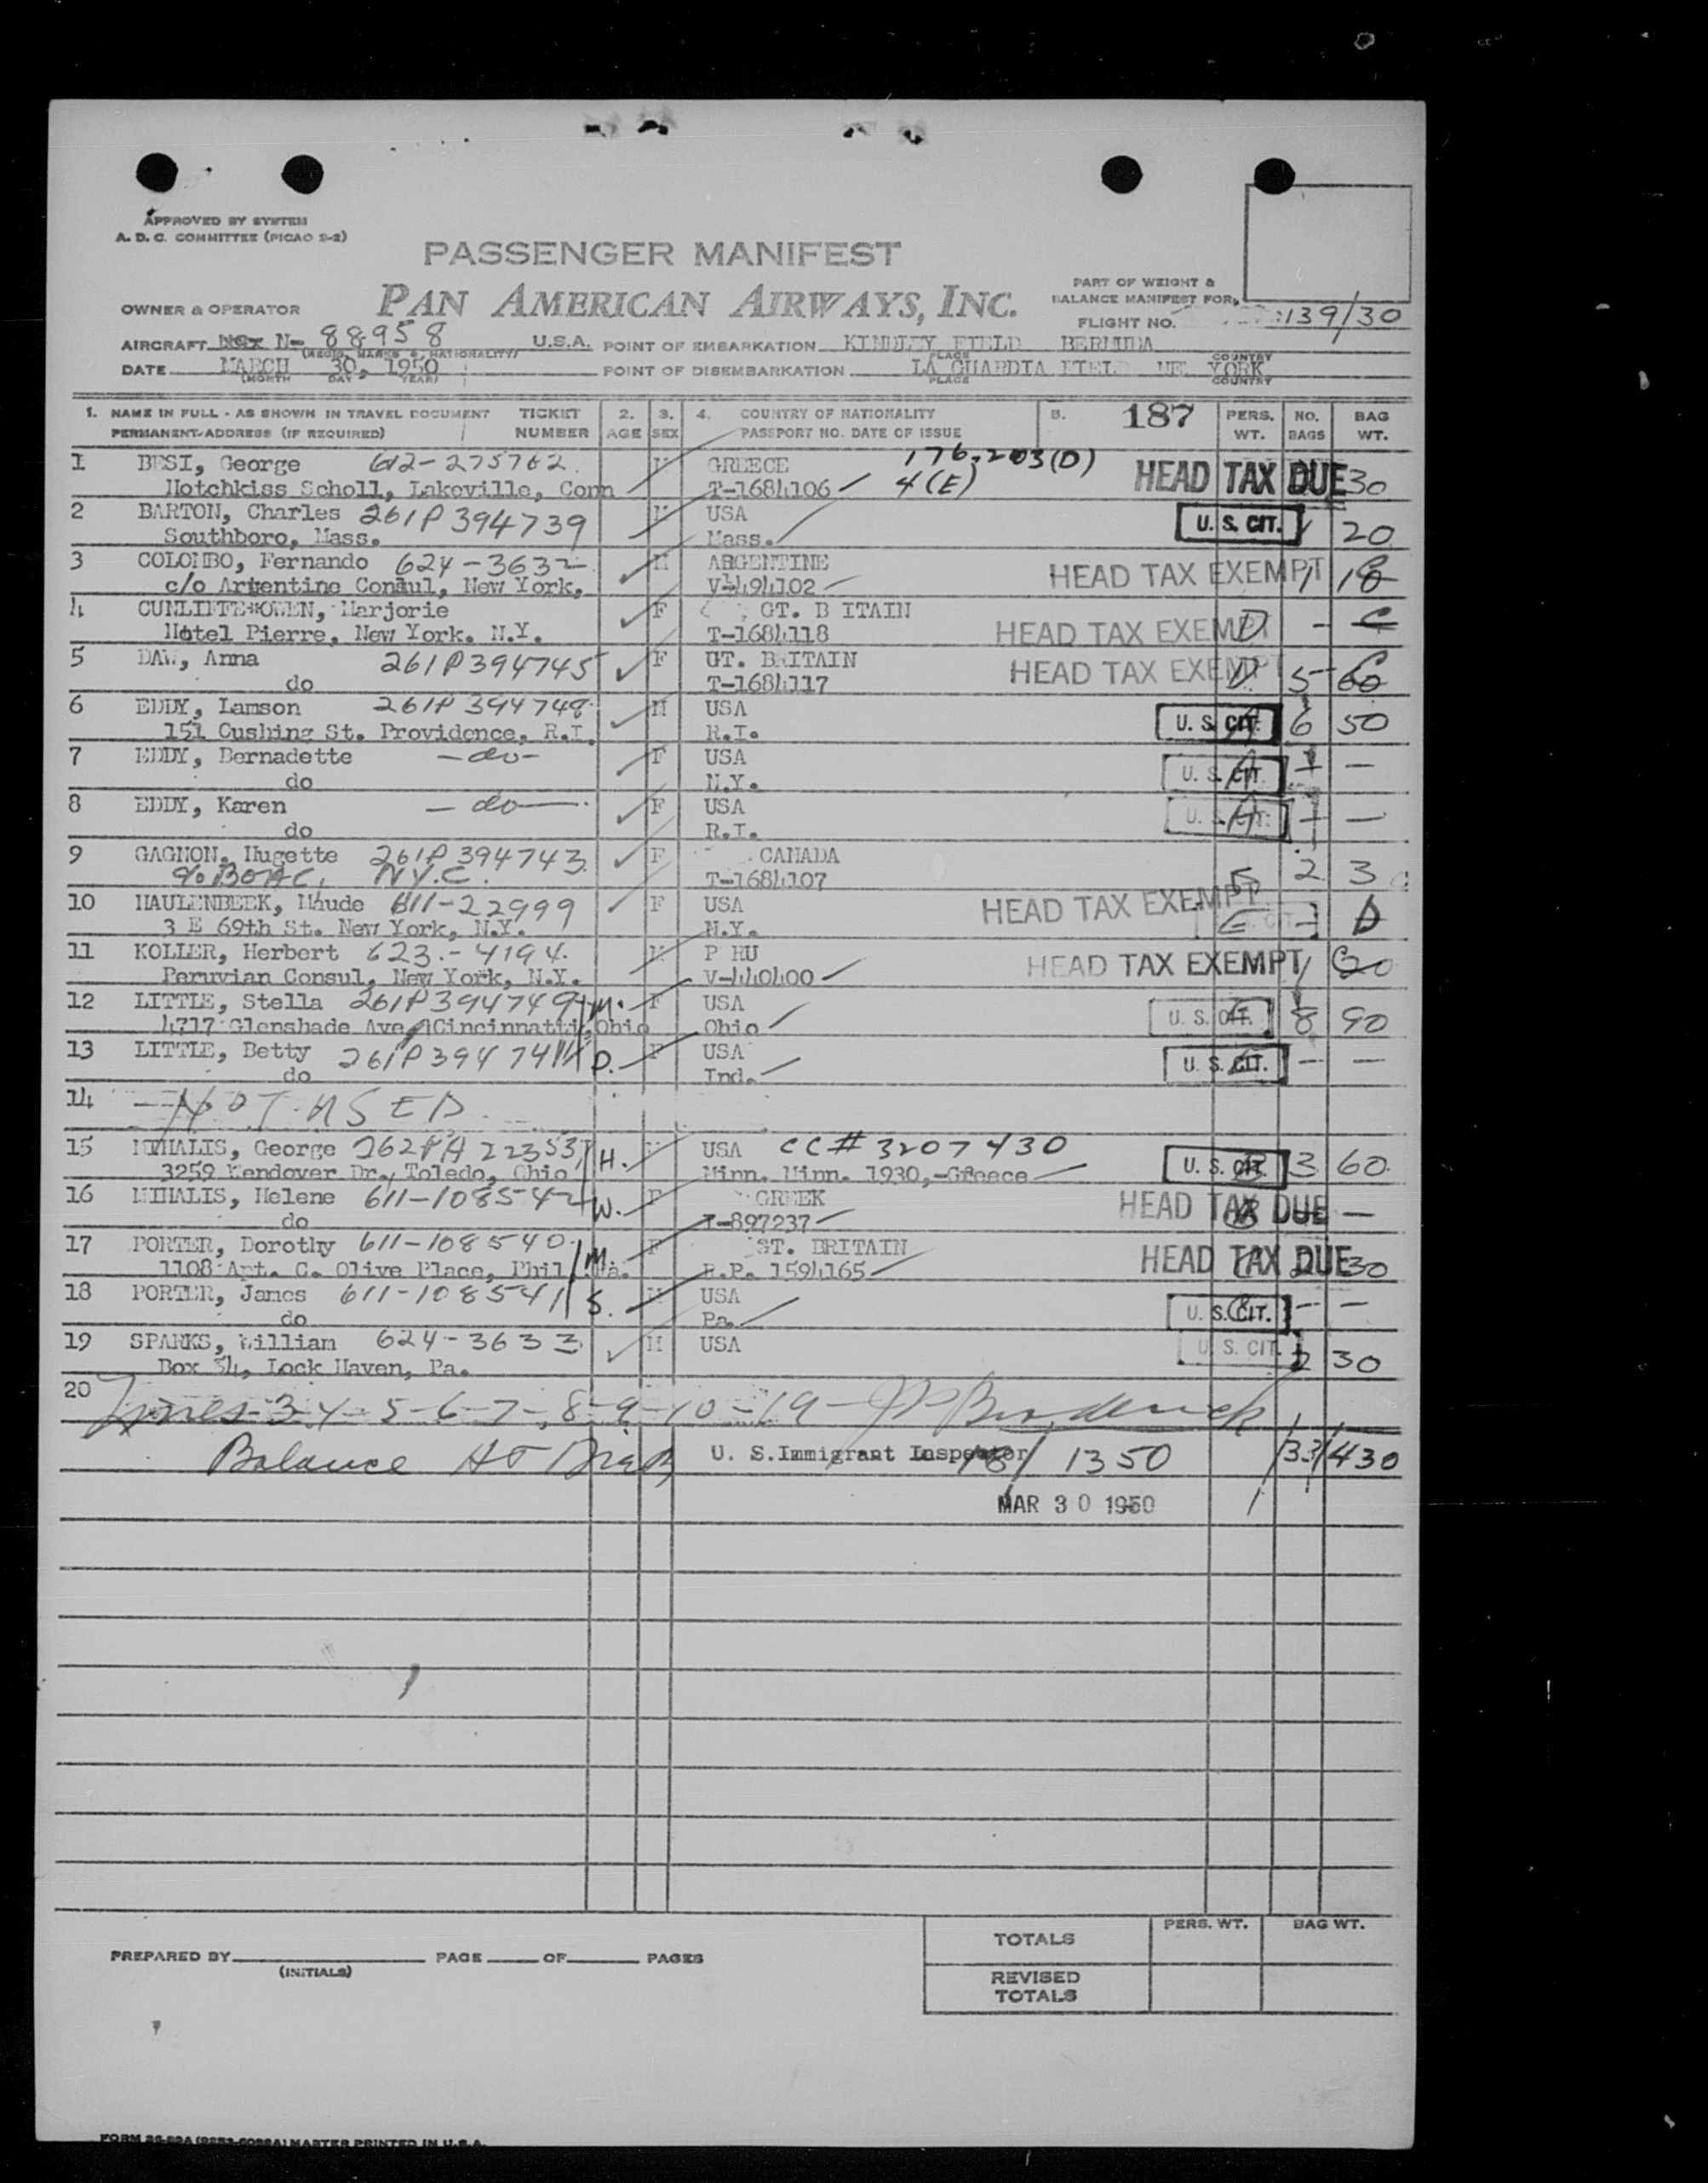 APPROVED BY SYSTEM
A. D. C. COMMITTEE (PICAO S-2)
PASSENGER MANIFEST
OWNER & OPERATOR PAN AMERICAN AIRWAYS, INC.
PART OF WEIGHT &
BALANCE MANIFEST FOR
FLIGHT NO. 139/30
AIRCRAFT N- 88958 U.S.A. POINT OF EMBARKATION KINDLEY FIELD BERMUDA
(REGIS. MARKS & NATIONALITY) PLACE COUNTRY
DATE MARCH 30, 1950 POINT OF DISEMBARKATION LA GUARDIA FIELD NEW YORK
(MONTH DAY YEAR) PLACE COUNTRY
1. NAME IN FULL - AS SHOWN IN TRAVEL DOCUMENT TICKET 2. 3. 4. COUNTRY OF NATIONALITY 5. 187 PERS. NO. BAG
PERMANENT ADDRESS (IF REQUIRED) NUMBER AGE SEX PASSPORT NO. DATE OF ISSUE WT. BAGS WT.
1 BESI, George 612-275762 M GREECE 176.203(D) HEAD TAX DUE 30
Hotchkiss Scholl, Lakeville, Conn T-1684106 4(E)
2 BARTON, Charles 261P394739 M USA U. S. CIT. 1 20
Southboro, Mass. Mass.
3 COLOMBO, Fernando 624-3632 M ARGENTINE HEAD TAX EXEMPT 1 18
c/o Argentine Consul, New York, V-494102
4 CUNLIFFE-OWEN, Marjorie F GT. B ITAIN HEAD TAX EXEMPT D -
Hotel Pierre, New York. N.Y. T-1684118
5 DAW, Anna 261P394745 F GT. BRITAIN HEAD TAX EXEMPT D 5 60
do T-1684117
6 EDDY, Lamson 261P394748 M USA U. S. CIT. 6 50
151 Cushing St. Providence, R.I. R.I.
7 EDDY, Bernadette -do- F USA U. S. CIT. —
do N.Y.
8 EDDY, Karen -do- F USA U. S. CIT. —
do R.I.
9 GAGNON, Hugette 261P394743 F CANADA 2 3
c/o BOAC, N.Y.C. T-1684107
10 HAULENBEEK, Maude 611-22999 F USA HEAD TAX EXEMPT
3 E 69th St. New York, N.Y. N.Y.
11 KOLLER, Herbert 623-4194 M P RU HEAD TAX EXEMPT 1 20
Peruvian Consul, New York, N.Y. V-440400
12 LITTLE, Stella 261P394749 M. F USA U. S. CIT. 8 90
4717 Glenshade Ave, Cincinnatti, Ohio Ohio
13 LITTLE, Betty 261P394741 D. F USA U. S. CIT. — —
do Ind.
14 - NOT USED
15 MIHALIS, George 262PA22353 H. M USA CC# 3207430 U. S. CIT. 3 60
3259 Wendover Dr., Toledo, Ohio Minn. Minn. 1930,-Greece
16 MIHALIS, Helene 611-108542 W. F GREEK HEAD TAX DUE —
do T-897237
17 PORTER, Dorothy 611-108540 M. F GT. BRITAIN HEAD TAX DUE 30
1108 Apt. C. Olive Place, Phil. Pa. R.P. 1594165
18 PORTER, James 611-108541 S. M USA U. S. CIT. — —
do Pa.
19 SPARKS, William 624-3633 M USA U. S. CIT. 2 30
Box 54, Lock Haven, Pa.
20 Lines-3-4-5-6-7-8-9-10-19-
Balance U. S. Immigrant Inspector 18/ 1350 33/430
MAR 30 1950
TOTALS PERS. WT. BAG WT.
PREPARED BY PAGE OF PAGES
(INITIALS)
REVISED
TOTALS